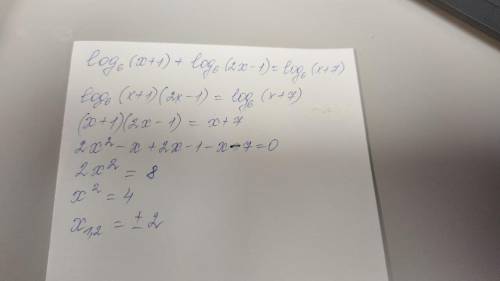 log₆(x+1) + log₆(2x-1) = log₆(x+7)
log₆(x+1)(2x-1) = log₆(x+7)
(x+1)(2x-1) = x+7
2x²-x+2x-1-x-7=0
2x² = 8
x² = 4
x₁,₂ = ±2